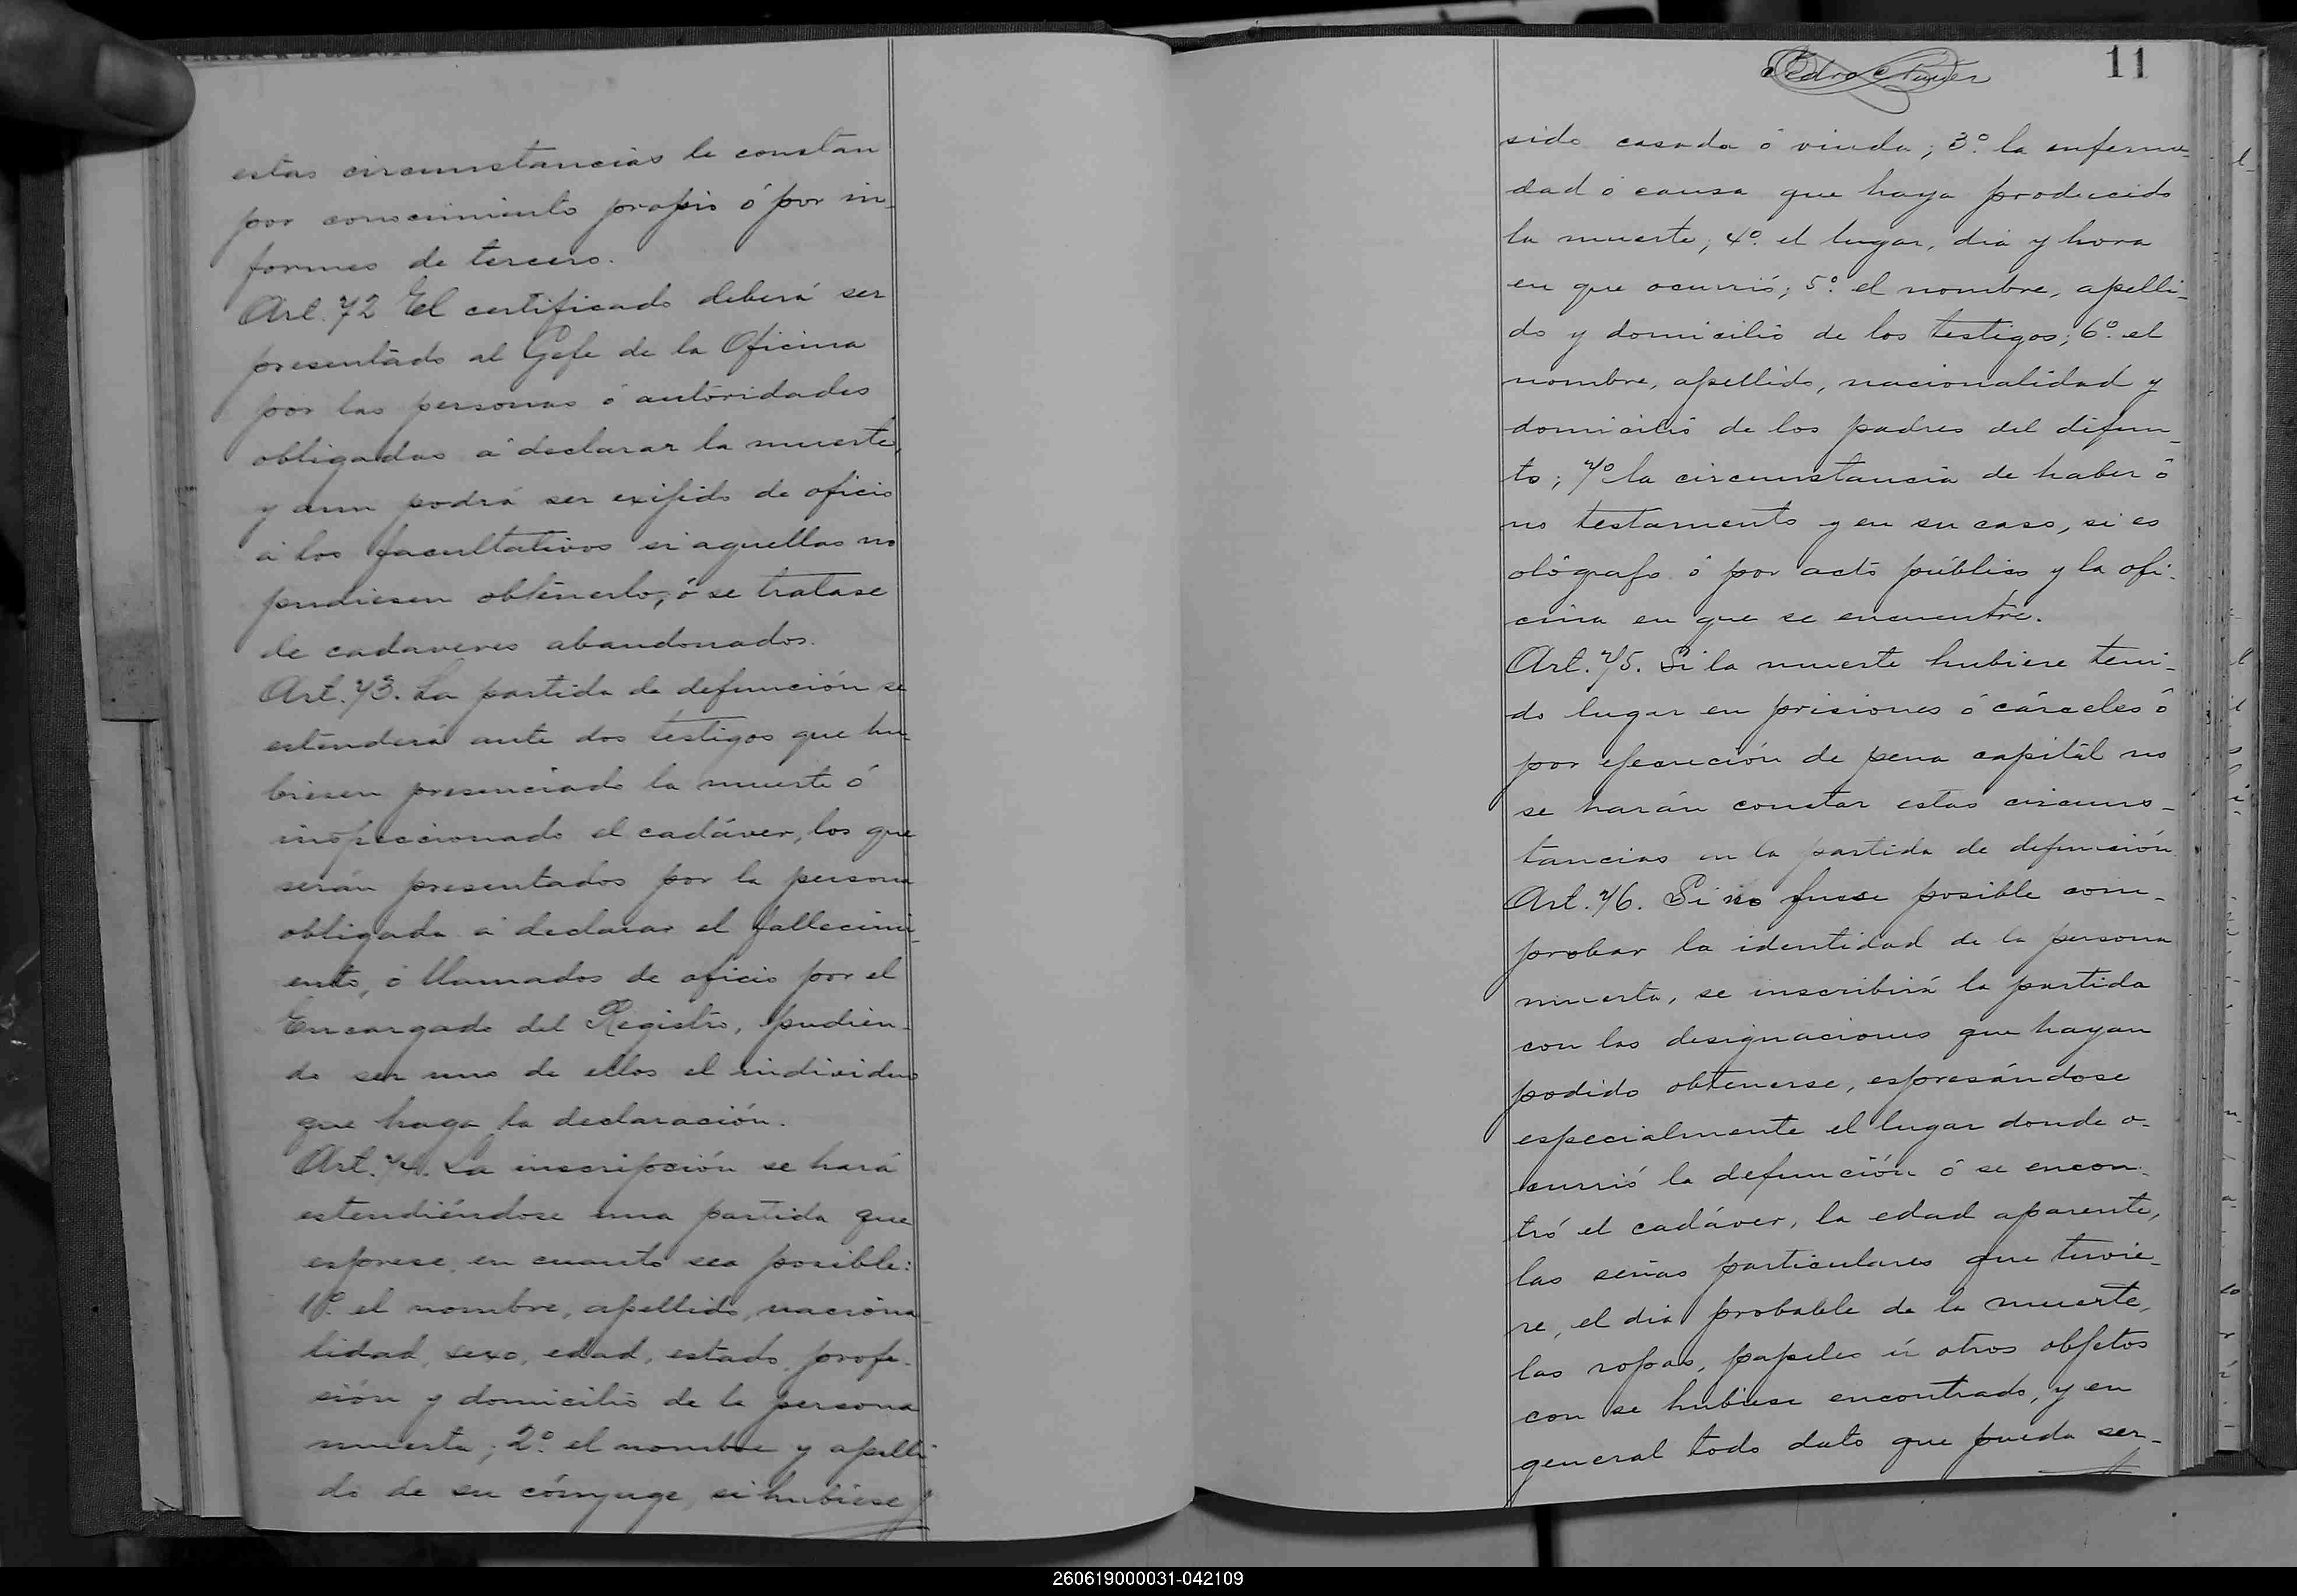 estas circunstancias le constan
por conocimiento propio ó por in-
formes de tercero.
Art. 72 El certificado deberá ser
presentado al Gefe de la Oficina
por las personas ó autoridades
obligadas á declarar la muerte,
y aun podrá ser exijido de oficio
á los facultativos si aquellas no
pudiesen obtenerlo, ó se tratase
de cadaveres abandonados.
Art. 73. La partida de defunción se
estenderá ante dos testigos que hu-
biesen presenciado la muerte ó
inspeccionado el cadáver, los que
serán presentados por la persona
obligada á declarar el fallecimi-
ento, ó llamados de oficio por el
Encargado del Registro, pudien-
do ser uno de ellos el individuo
que haga la declaración.
Art. 74. La inscripción se hará
estendiéndose una partida que
esprese, en cuanto sea posible:
1º. el nombre, apellido, naciona-
lidad, sexo, edad, estado, profe-
sión y domicilio de la persona
muerta; 2º. el nombre y apelli-
do de su cónyuge, si hubiese
Pedro
11
sido casada ó viuda; 3º. la enferme-
dad ó causa que haya producido
la muerte; 4º. el lugar, dia y hora
en que ocurrió; 5º. el nombre, apelli-
do y domicilio de los testigos; 6º. el
nombre, apellido, nacionalidad y
domicilio de los padres del difun-
to; 7º la circunstancia de haber ó
no testamento y en su caso, si es
ológrafo ó por acto público y la ofi-
cina en que se encuentre.
Art. 75. Si la muerte hubiere teni-
do lugar en prisiones ó cárceles ó
por ejecución de pena capital no
se harán constar estas circuns-
tancias en la partida de defunción
Art. 76. Si no fuese posible com-
probar la identidad de la persona
muerta, se inscribirá la partida
con las designaciones que hayan
podido obtenerse, espresándose
especialmente el lugar donde o-
currió la defunción ó se encon-
tró el cadáver, la edad aparente,
las señas particulares que tuvie-
re, el dia probable de la muerte,
las ropas, papeles ú otros objetos
con se hubiese encontrado, y en
general todo dato que pueda ser-
260619000031-042109